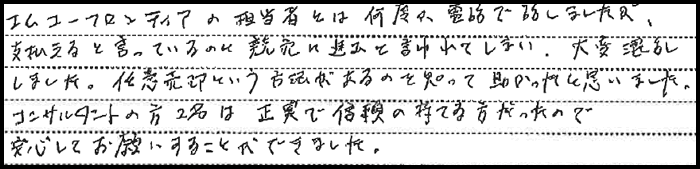 エムユーフロンティアの担当者とは何度か電話で話しましたが、
支払えると言っているのに競売に進むと言われてしまい、大変混乱
しました。任意売却という方法があるのを知って助かったと思いました。
コンサルタントの方2名は正実で信頼の持てる方だったので
安心してお願いすることができました。